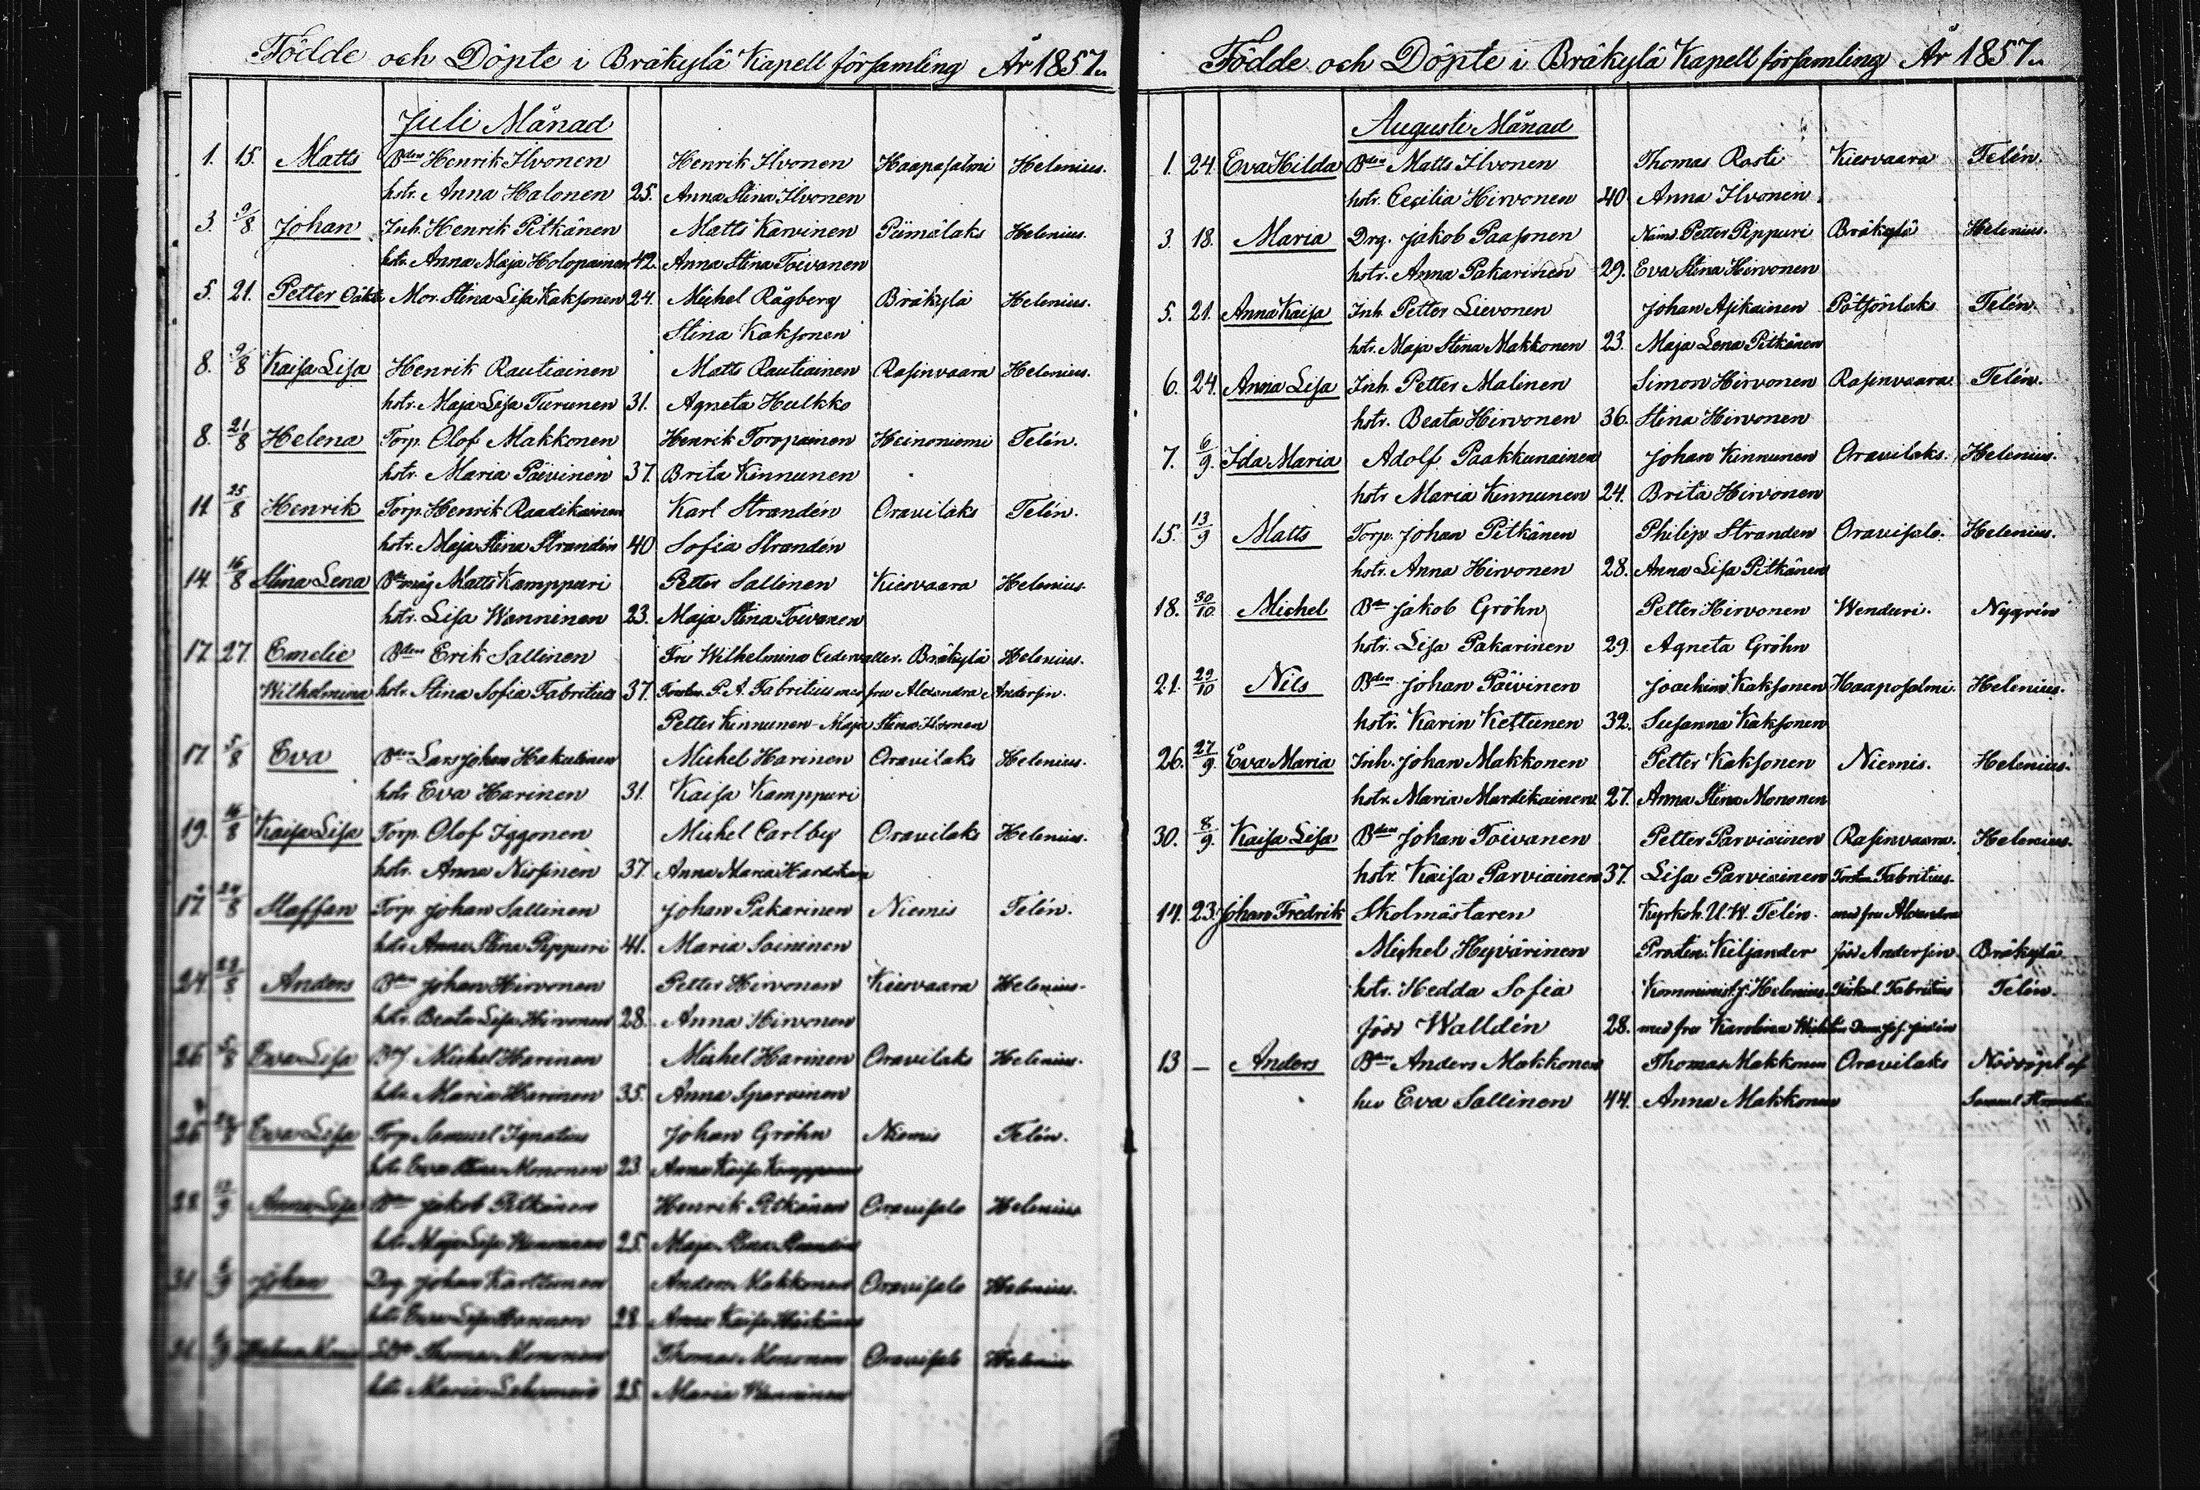 Födde och Döpte i Bräkylä Kapell församling År 1857.
Juli Månad
1. 15. Matts Bden Henrik Ilvonen Henrik Ilvonen Haaposalmi Helenius.
hstr. Anna Halonen 25. Anna Stina Ilvonen
3. 9/8 Johan Inh. Henrik Pitkänen Matts Karvinen Piimälaks Helenius.
hstr. Anna Maja Holopainen 42. Anna Stina Toivanen
5. 21. Petter Oäkta Mor. Stina Lisa Kaksonen 24. Michel Rågberg Bräkylä Helenius.
Stina Kaksonen
8. 9/8 Kaisa Lisa Henrik Rautiainen Matts Rautiainen Rasinvaara Helenius.
hstr. Maja Lisa Turunen 31. Agneta Hulkko
8. 21/8 Helena Torp. Olof Makkonen Henrik Toropainen Heinoniemi Telén.
hstr. Maria Päivinen 37. Brita Kinnunen
11 25/8 Henrik Torp. Henrik Raadikainen Karl Strandén Oravilaks Telén.
hstr. Maja Stina Strandén 40 Sofia Strandén
14. 16/8 Stina Lena Bmåg Matts Kamppuri Petter Sallinen Kiesvaara Helenius.
hstr. Lisa Wanninen 23. Maja Stina Toivanen
17 27. Emelie Bden Erik Sallinen Fru Wilhelmina Cederwaller. Bräkylä Helenius.
Wilhelmina hstr. Stina Sofia Fabritius 37. P. A. Fabritius med fru Alexandra Andersin.
Petter Kinnunen – Maja Stina Ilvonen
17. 5/8 Eva Bden Lars Johan Hakulinen Michel Harinen Oravilaks Helenius.
hstr Eva Harinen 31. Kaisa Kamppuri
19. 16/8 Kaisa Lisa Torp. Olof Iggonen Michel Carlby Oravilaks Helenius.
hstr. Anna Nissinen 37. Anna Maria
17. 24/8 Staffan Torp. Johan Sallinen Johan Pakarinen Niemis Telén.
hstr. Anna Stina Pippuri 41. Maria Soininen
24. 23/8 Anders Bden Johan Hirvonen Petter Hirvonen Kiesvaara Helenius.
hstr. Beata Lisa Hirvonen 28. Anna Hirvonen
26 5/8 Eva Lisa Michel Harinen Michel Harinen Oravilaks Helenius.
hstr. Maria Harinen 35. Anna Sparvinen
26 24/8 Eva Lisa Torp. Samuel Ignatius Johan Gröhn Niemis Telén.
hstr. Eva Stina Mononen 23. Anna Kaisa
28. Anna Lisa Jakob Pitkänen Henrik Pitkänen Oravisalo Helenius
hstr. Maja Lisa 25. Maja Stina
31 Johan Drg. Johan Karttunen Anders Makkonen Oravisalo Helenius.
hstr. Eva Lisa Harinen 28. Anna Kaisa
31. Thomas Mononen Thomas Mononen Oravisalo Helenius
hstr. Maria 25. Maria
Födde och Döpte i Bräkylä Kapell församling År 1857.
Augusti Månad
1. 24. Eva Hilda Bden Matts Ilvonen Thomas Rosti Kiesvaara Telén.
hstr. Cecilia Hirvonen 40. Anna Ilvonen.
3. 18. Maria Drg. Jakob Paasonen Nämd. Petter Pippuri Bräkylä Helenius.
hstr. Anna Pakarinen 29. Eva Stina Hirvonen
5. 21. Anna Kaisa Inh. Petter Lievonen Johan Asikainen Pötsönlaks Telén.
hstr. Maja Stina Makkonen 23. Maja Lena Pitkänen
6. 24. Anna Lisa Inh. Petter Malinen Simon Hirvonen Rasinvaara. Telén.
hstr. Beata Hirvonen 36. Stina Hirvonen
7. 6/9. Ida Maria Adolf Paakkunainen Johan Kinnunen Oravilaks. Helenius.
hstr Maria Kinnunen 24. Brita Hirvonen
15. 13/9 Matts Torp. Johan Pitkänen Philip Stranden Oravisalo. Helenius.
hstr. Anna Hirvonen 28. Anna Lisa Pitkänen
18. 30/10 Michel Bden Jakob Gröhn Petter Hirvonen Wenduri. Nygrén
hstr. Lisa Pakarinen 29. Agneta Gröhn
21. 29/10 Nils Bden Johan Päivinen Joachim Kaksonen Haaposalmi. Helenius.
hstr. Karin Kettunen 32. Susanna Kaksonen
26. 27/9. Eva Maria Inh. Johan Makkonen Petter Kaksonen Niemis. Helenius.
hstr. Maria Mardikainen 27. Anna Stina Mononen
30. 8/9. Kaisa Lisa Bden Johan Toivanen Petter Parviainen Rasinvaara. Helenius.
hstr. Kaisa Parviainen 37. Lisa Parviainen Fabritius
14. 23. Johan Fredrik Skolmästaren Kyrkoh. U. W. Telén. med fru Alexandra
Michel Hyvärinen Prostin. Kiljander född Andersin. Bräkylä
hstr. Hedda Sofia Kommunist. J. Helenius Fiskal. Fabritius Telén.
född Walldén 28. med fru Karolina
13 – Anders Bden Anders Makkonen Thomas Makkonen Oravilaks Nöddöpt af
hu Eva Sallinen 44. Anna Makkonen Samuel